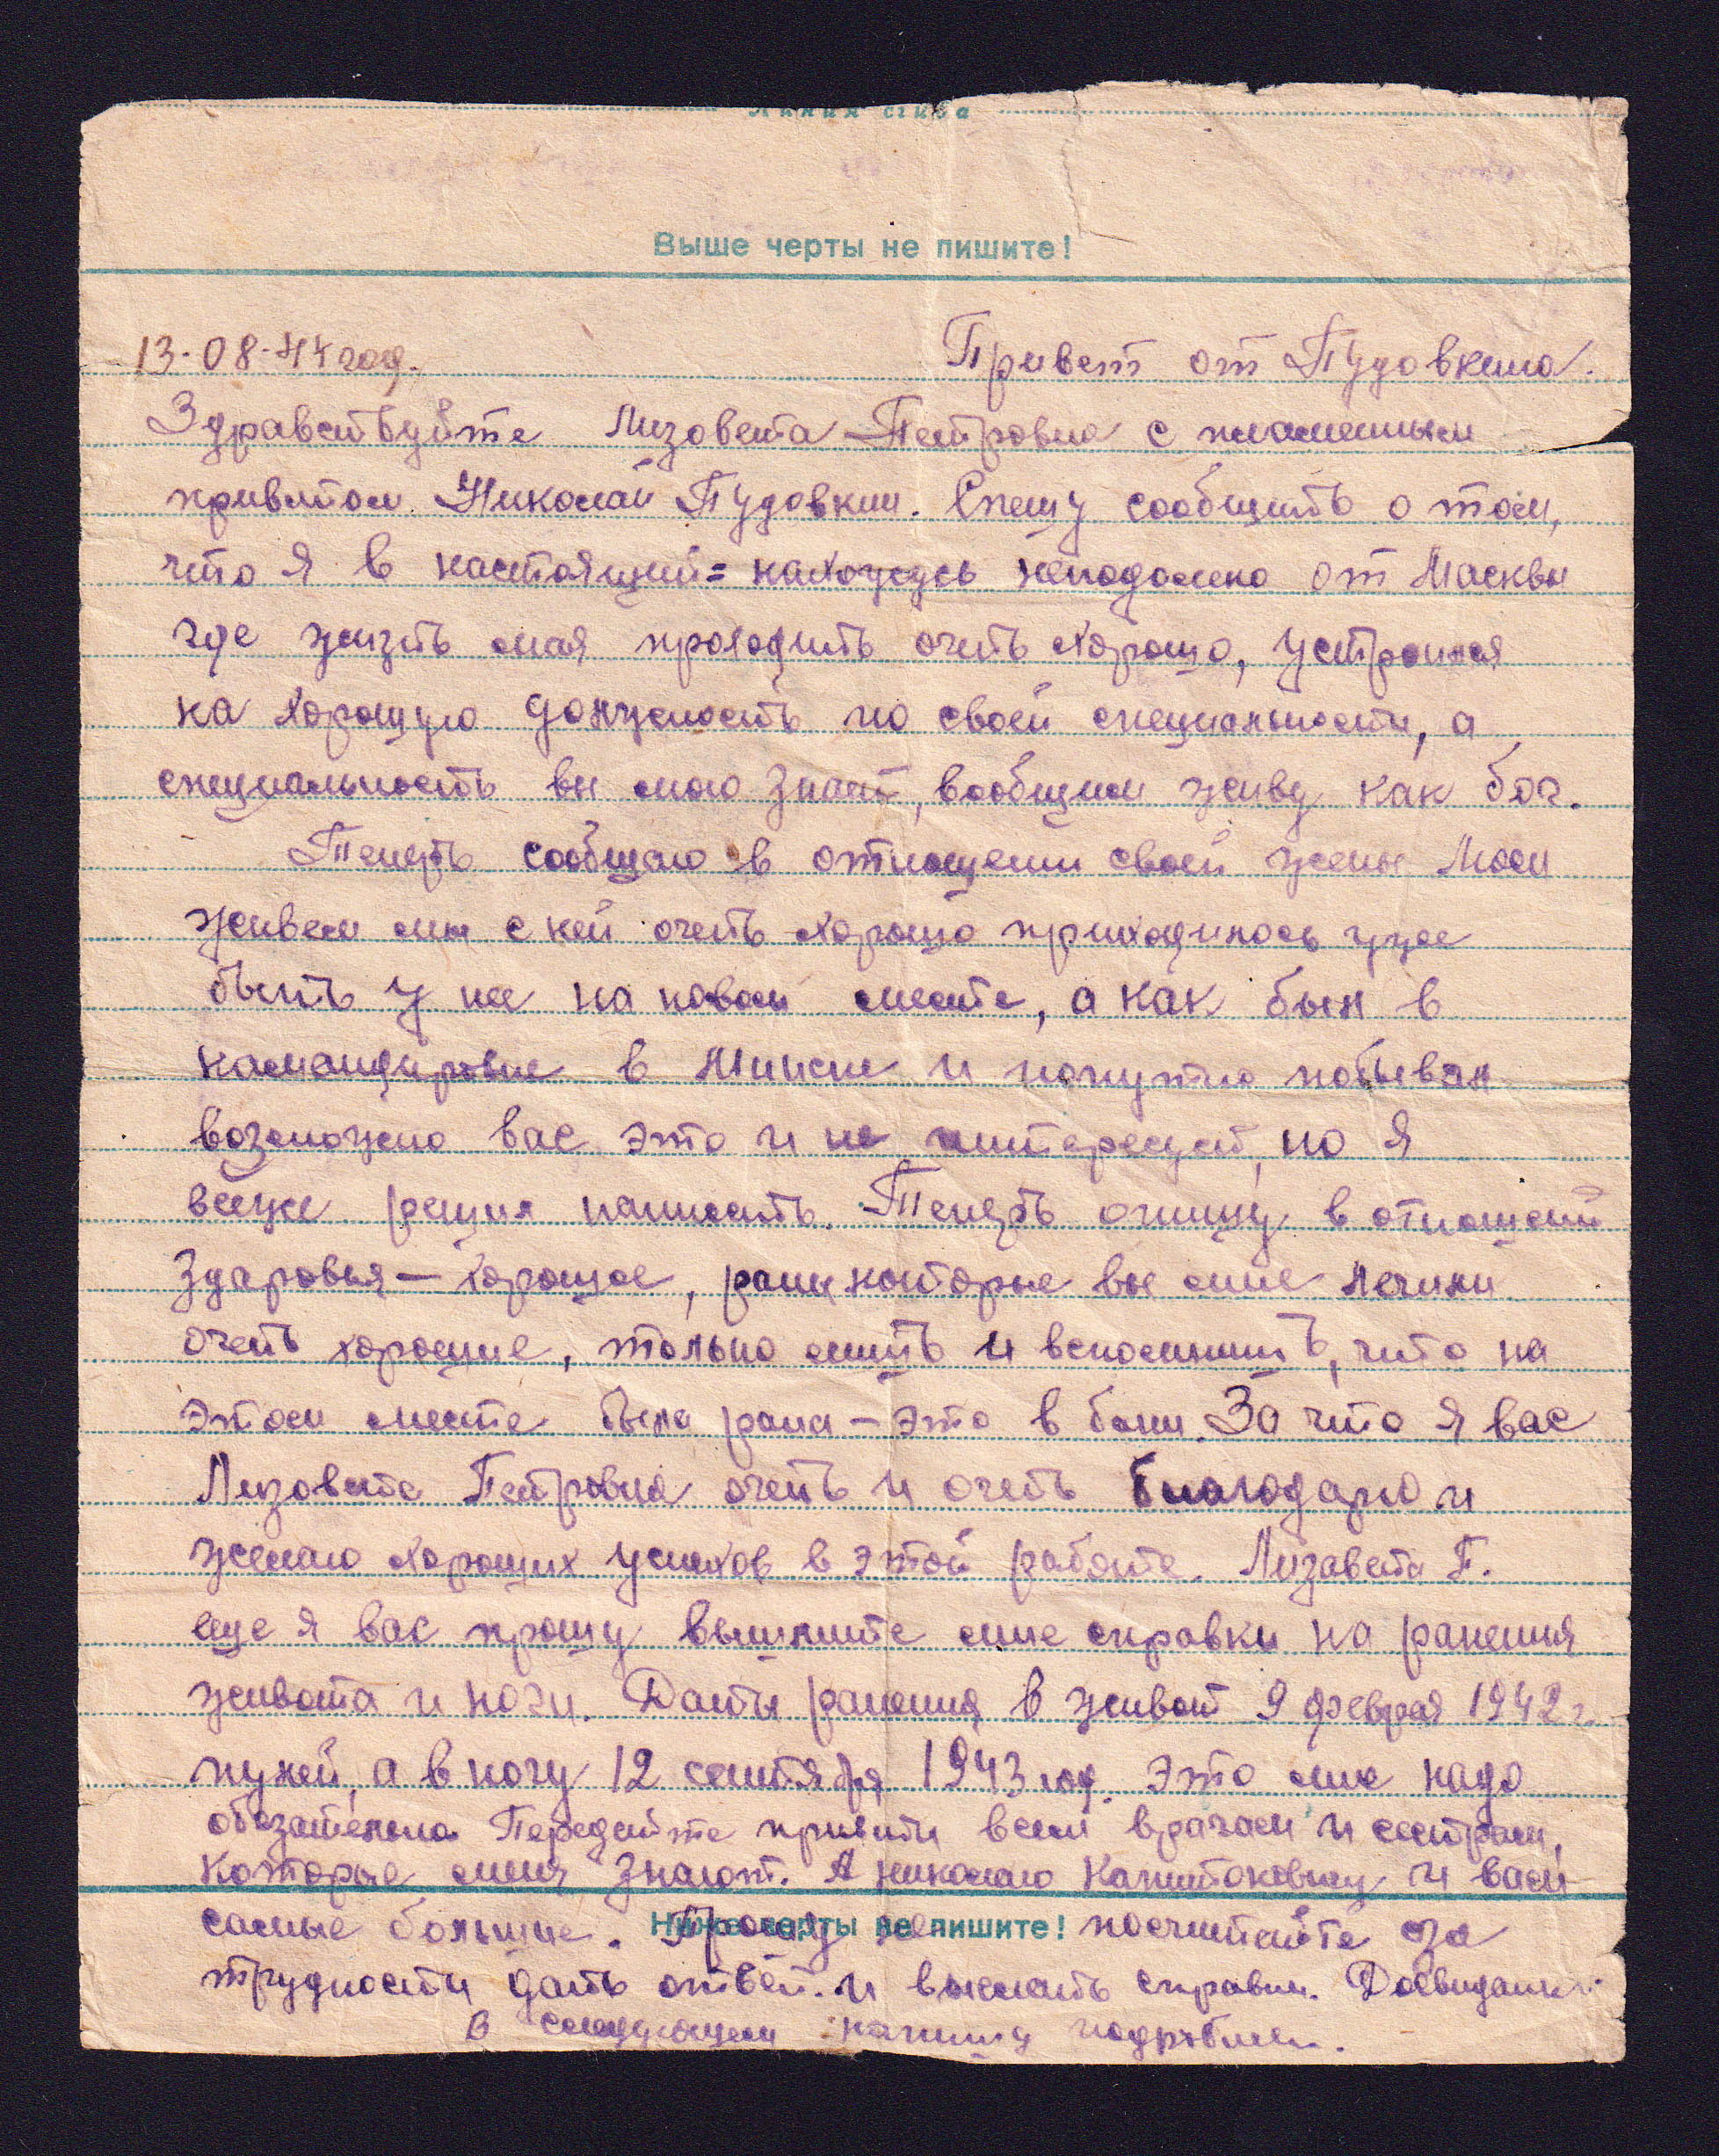 Линия сгиба
Выше черты не пишите!
13-08-44 год. Привет от Пудовкина.
Здравствуйте Лизовета Петровна с пламенным
приветом Николай Пудовкин. Спешу сообщить о том,
что я в настоящий= нахожусь неподолеко от Масквы
где жизть моя проходить очеть хорошо, устроился
на хорошую должность по своей специльности, а
специальность вы мою знает, вообщем живу как бог.
Теперь сообщаю в отношении своей жены Люси
живем мы с ней очеть хорошо приходилось уже
быть у нее на новом месте, а как был в
командировке в Минске и попутно побывал
возможно вас это и не интересует, но я
всеже решил написать. Теперь опишу в отношении
Здоровья — хорошее, раны которые вы мне лечили
очеть хорошие, только лишь и вспомнишь, что на
этом месте была рана — это в бани. За что я вас
Лизовета Петровна очеть и очеть благодарю и
желаю хороших успехов в этой работе. Лизавета П.
еще я вас прошу вышлите мне справки на ранения
живота и ноги. Даты ранения в живот 9 феврая 1942 г.
пулей, а в ногу 12 сентября 1943 год. это мне надо
обезательно Передайте приветы всем врачам и сестрам,
которые меня знают. А николаю Капитоновичу и вам
самые большие. Прошу не посчитайте за
Ниже черты не пишите!
трудности дать ответ. и выслать справки. Досвидания.
В следующем напишу подробнее.